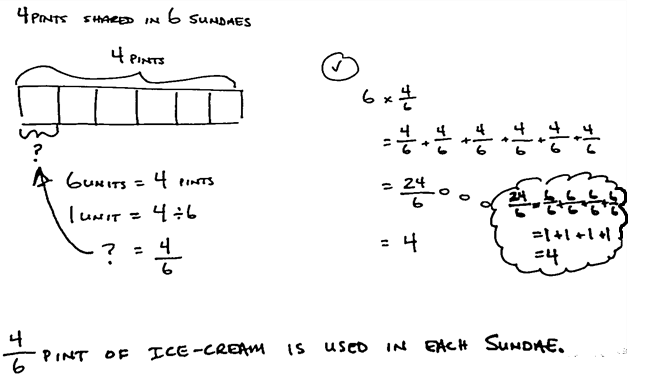 4 PINTS SHARED IN 6 SUNDAES
4 PINTS
?
6 UNITS = 4 PINTS
1 UNIT = 4 ÷ 6
? = 4/6
✓
6 × 4/6
= 4/6 + 4/6 + 4/6 + 4/6 + 4/6 + 4/6
= 24/6
= 4
24/6 = 6/6 + 6/6 + 6/6 + 6/6
= 1 + 1 + 1 + 1
= 4
4/6 PINT OF ICE-CREAM IS USED IN EACH SUNDAE.